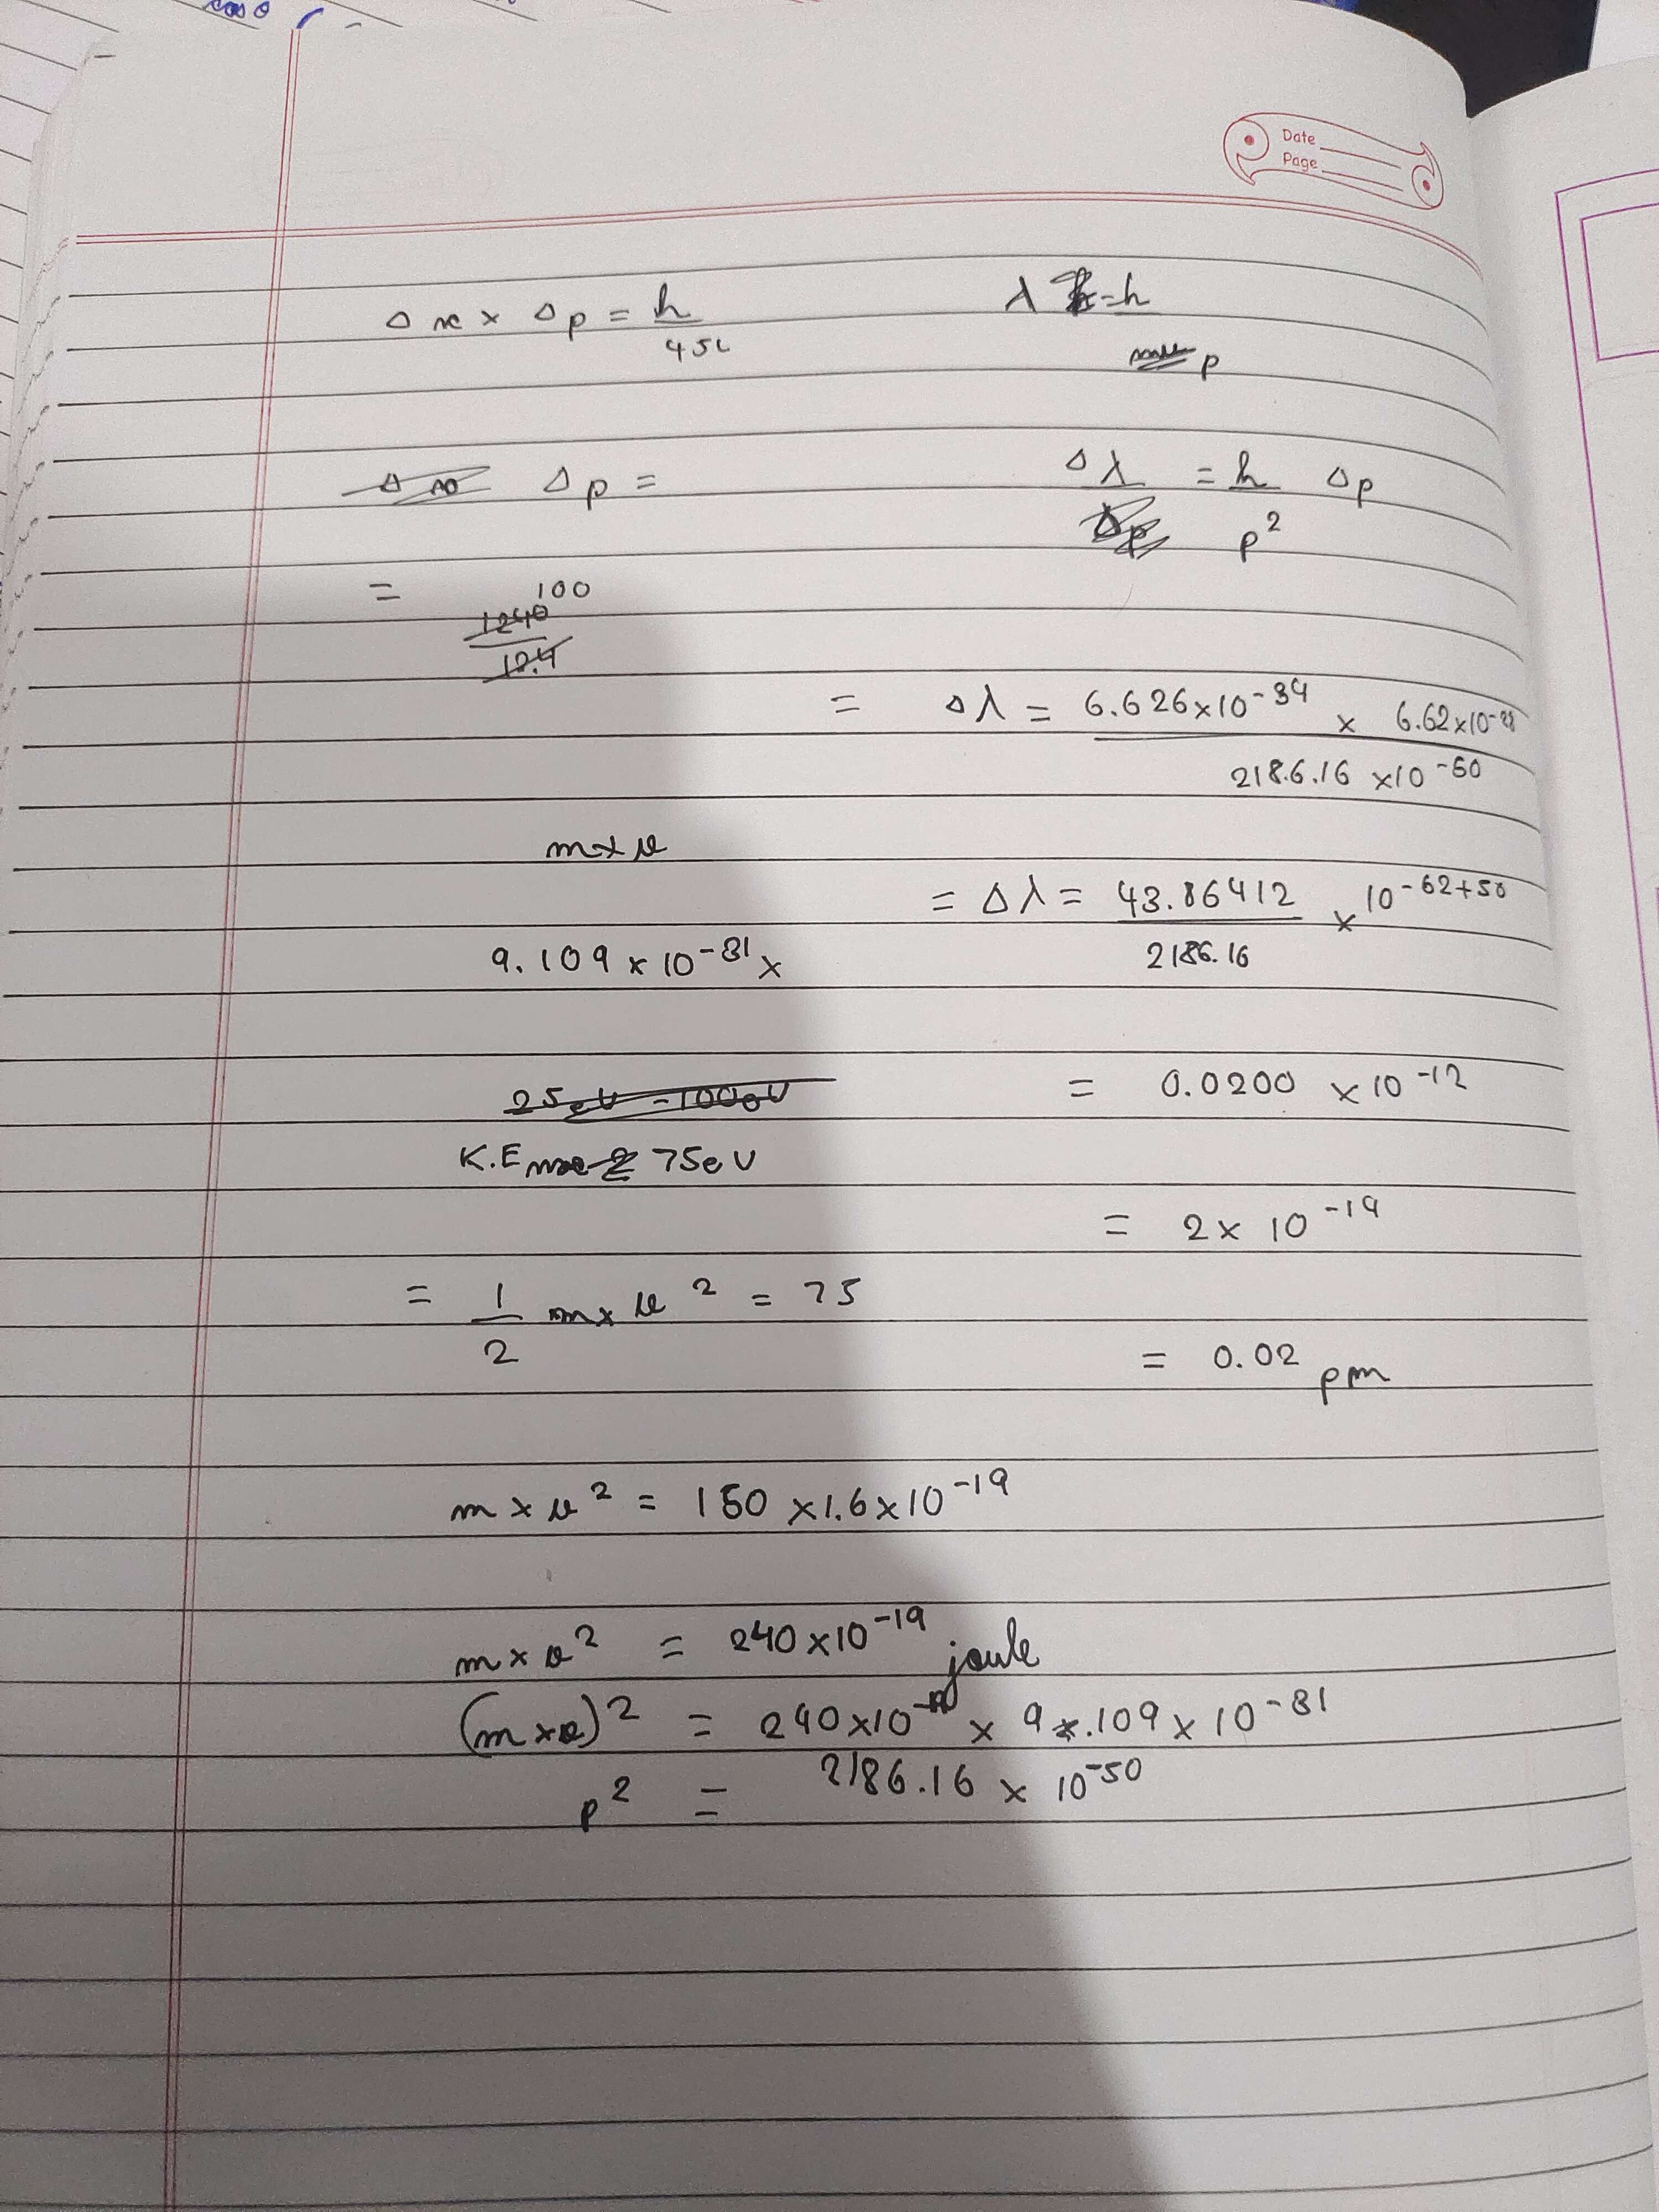 cos θ
Date
Page
Δx × Δp = h/4π
λ = h/p
Δp =
Δλ = h/p² Δp
= 100
1240/12.4
= Δλ = 6.626×10⁻³⁴ × 6.62×10⁻²⁸ / 2186.16 ×10⁻⁵⁰
m×v
= Δλ = 43.86412/2186.16 × 10⁻⁶²⁺⁵⁰
9.109 × 10⁻³¹ ×
25eV - 100eV
= 0.0200 × 10⁻¹²
K.E 75eV
= 2 × 10⁻¹⁴
= 1/2 m × v² = 75
= 0.02 pm
m × v² = 150 ×1.6×10⁻¹⁹
m × v² = 240×10⁻¹⁹ joule
(m×v)² = 240×10⁻¹⁹ × 9.109 × 10⁻³¹
p² = 2186.16 × 10⁻⁵⁰